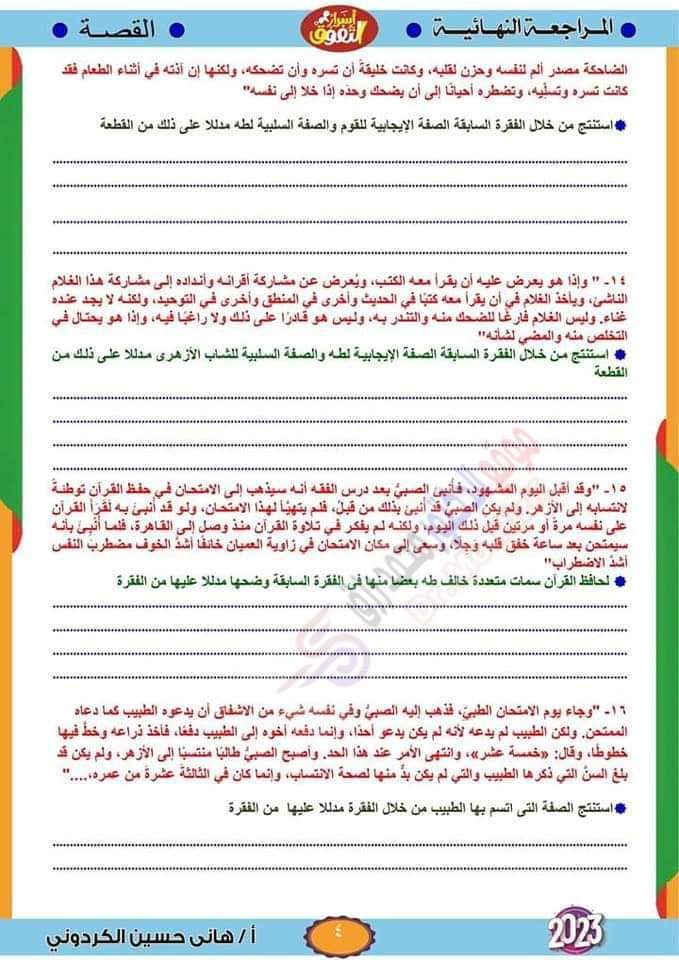 المراجعة النهائية
أسرار التفوق
القصة
الضاحكة مصدر ألم لنفسه وحزن لقلبه، وكانت خليقةً أن تسره وأن تضحكه، ولكنها إن آذته في أثناء الطعام فقد
كانت تسره وتسلّيه، وتضطره أحيانًا إلى أن يضحك وحدَه إذا خلا إلى نفسه"
استنتج من خلال الفقرة السابقة الصفة الإيجابية للقوم والصفة السلبية لطه مدللا على ذلك من القطعة
١٤- " وإذا هو يعرض عليه أن يقرأ معه الكتب، ويُعرض عن مشاركة أقرانه وأنداده إلى مشاركة هذا الغلام
الناشئ، ويأخذ الغلام في أن يقرأ معه كتبًا في الحديث وأخرى في المنطق وأخرى في التوحيد، ولكنه لا يجد عنده
غناء. وليس الغلام فارغًا للضحك منه والتندر به، وليس هو قادرًا على ذلك ولا راغبًا فيه، وإذا هو يحتال في
التخلص منه والمضي لشأنه"
استنتج من خلال الفقرة السابقة الصفة الإيجابية لطه والصفة السلبية للشاب الأزهرى مدللا على ذلك من
القطعة
١٥- "وقد أقبل اليوم المشهود، فأُنبئ الصبيُّ بعد درس الفقه أنه سيذهب إلى الامتحان في حفظ القرآن توطئةً
لانتسابه إلى الأزهر. ولم يكن الصبيُّ قد أنبئ بذلك من قبلُ، فلم يتهيَّأ لهذا الامتحان، ولو قد أُنبئ به لقَرَأ القرآن
على نفسه مرةً أو مرتين قبل ذلك اليوم، ولكنه لم يفكر في تلاوة القرآن منذ وصل إلى القاهرة، فلما أُنبئ بأنه
سيمتحن بعد ساعة خفق قلبه وجلًا، وسعى إلى مكان الامتحان في زاوية العميان خائفًا أشدَّ الخوف مضطربَ النفس
أشدَّ الاضطراب"
لحافظ القرآن سمات متعددة خالف طه بعضا منها فى الفقرة السابقة وضحها مدللا عليها من الفقرة
١٦- "وجاء يوم الامتحان الطبيّ، فذهب إليه الصبيُّ وفي نفسه شيء من الاشفاق أن يدعوه الطبيب كما دعاه
الممتحن. ولكن الطبيب لم يدعه لأنه لم يكن يدعو أحدًا، وإنما دفعه أخوه إلى الطبيب دفعًا، فأخذ ذراعه وخطَّ فيها
خطوطًا، وقال: «خمسة عشر»، وانتهى الأمر عند هذا الحد. وأصبح الصبيُّ طالبًا منتسبًا إلى الأزهر، ولم يكن قد
بلغ السنَّ التي ذكرها الطبيب والتي لم يكن بدٌّ منها لصحة الانتساب، وإنما كان في الثالثةَ عشرةَ من عمره،...."
استنتج الصفة التى اتسم بها الطبيب من خلال الفقرة مدللا عليها من الفقرة
2023
٤
أ/ هانى حسين الكردوني